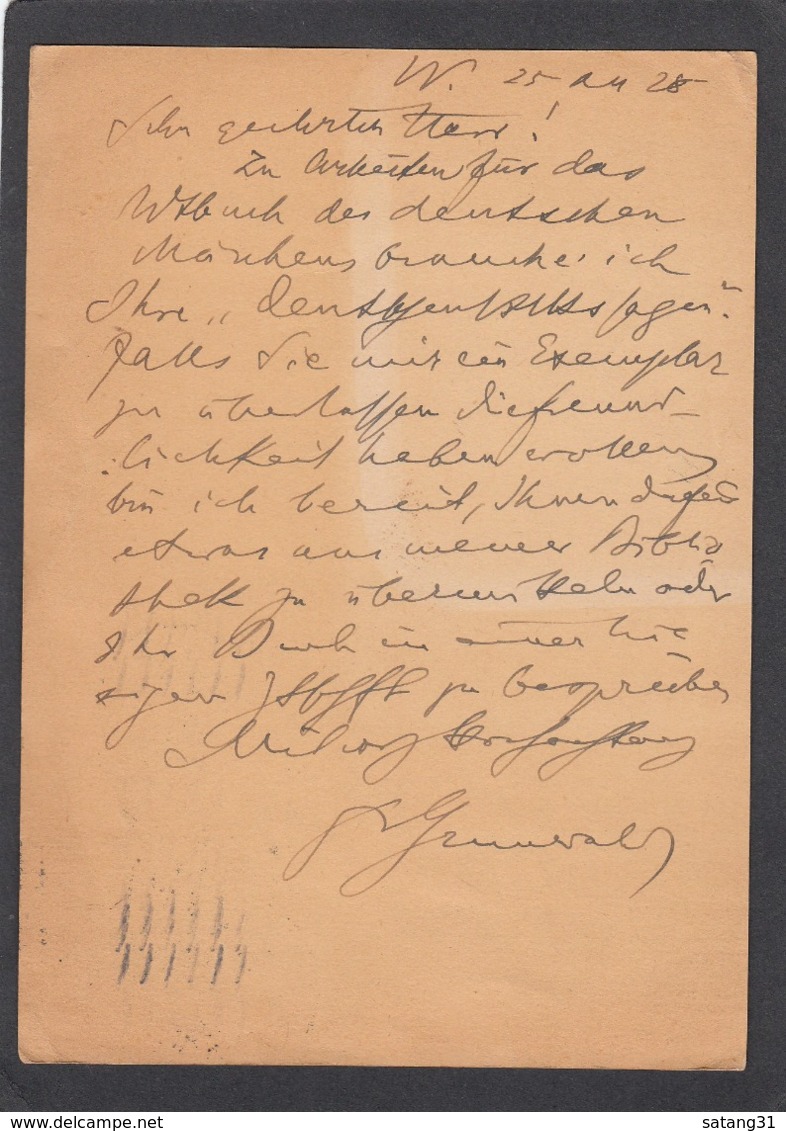 W. 25 28
Sehr geehrter Herr!
Zu Arbeiten für das
Wtbuch des deutschen
Märchens brauche ich
Ihre „deutschen
Falls Sie mir ein Exemplar
zu überlassen die freund-
lichkeit haben wollen
bin ich bereit, Ihnen dafür
etwas aus meiner Biblio
thek zu übermitteln oder
Ihr Buch in einer hie
sigen Ztschft zu besprechen
Mit vorz
Grunwald
satang31